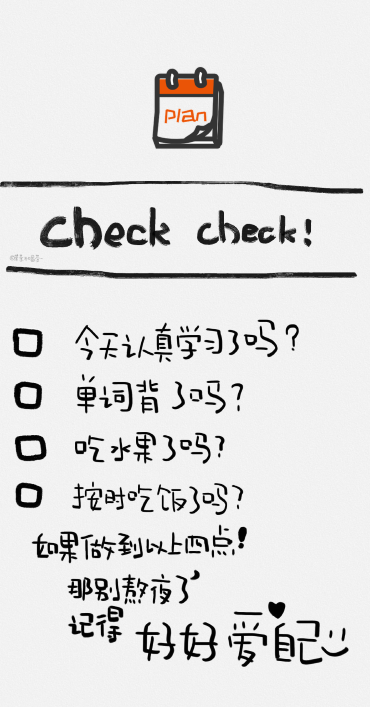 Plan
check check!
今天认真学习了吗?
单词背了吗?
吃水果了吗?
按时吃饭了吗?
如果做到以上四点!
那别熬夜了
记得 好好爱自己